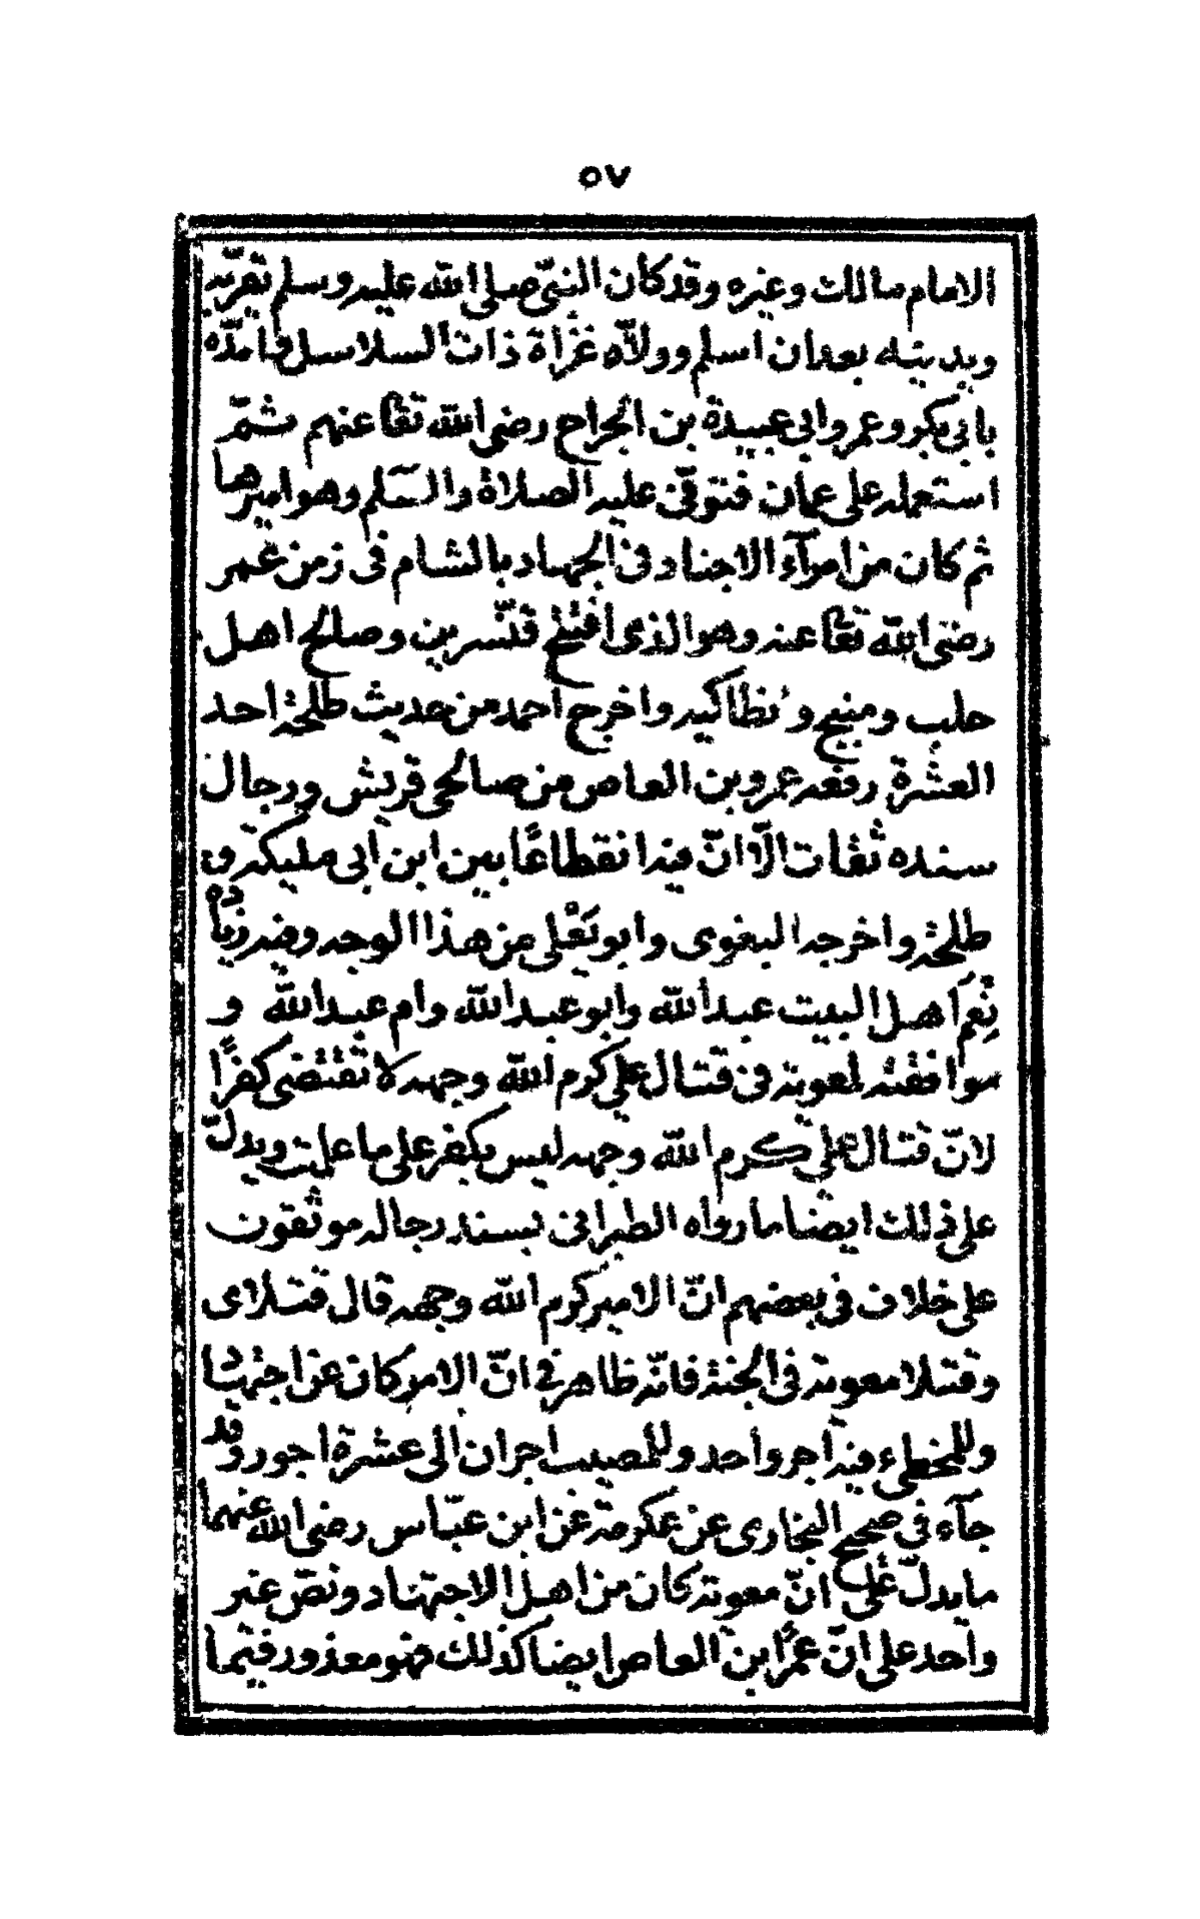 ٥٧
الامام مالك وغيره وقد كان النبي صلى الله عليه وسلم يقرّبه
ويدنيه بعد ان اسلم وولّاه غزاة ذات السلاسل وامدّه
بابي بكر وعمر وابي عبيدة بن الجراح رضي الله تعالى عنهم ثمّ
استعمله على عمان فتوفّي عليه الصلاة والسّلم وهو اميرها
ثم كان من امرآء الاجناد في الجهاد بالشام في زمن عمر
رضى الله تعالى عنه وهو الذى افتتح قنّسرين وصالح اهل
حلب ومنبج وانطاكيه واخرج احمد من حديث طلحة احد
العشرة رفعه عمرو بن العاص من صالحي قريش ورجال
سنده ثقات الّا انّ فيه انقطاعًا بين ابن ابي مليكه و
طلحة واخرجه البغوى وابو يعلى من هذا الوجه وفيه زياده
نِعْم اهل البيت عبد الله وابو عبد الله وام عبد الله و
موافقته لمعوية في قتال علي كرم الله وجهه لا تقتضى كفرًا
لانّ قتال علي كرم الله وجهه ليس بكفر على ما علمت ويدلّ
على ذلك ايضا ما رواه الطبراني بسند رجاله موثقون
على خلاف في بعضهم انّ الامير كرم الله وجهه قال قتلاى
وقتلا معوية في الجنة فانّه ظاهر في انّ الامر كان عن اجتهاد
وللمخطىء فيه اجر واحد وللمصيب اجران الى عشرة اجور وقد
جآء في صحيح البخارى عن عكرمة عن ابن عبّاس رضى الله عنهما
ما يدلّ على انّ معوية كان من اهل الاجتهاد ونصّ غير
واحد على انّ عمرًا بن العاص ايضا كذلك فهو معذور فيما